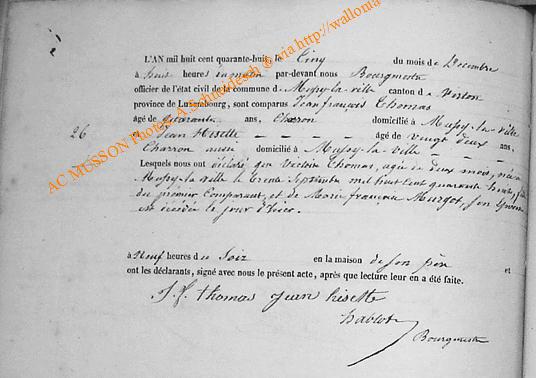 L'AN mil huit cent quarante-huit, le Cinq du mois de Décembre
à huit heures du matin par-devant nous Bourgmestre
officier de l'état civil de la commune de Mussy-la-ville canton de Virton
province de Luxembourg, sont comparus Jean françois Thomas
âgé de quarante ans, Charron domicilié à Mussy-la-ville
26 et Jean Hisette âgé de vingt deux ans,
Charron aussi domicilié à Mussy-la-ville
Lesquels nous ont déclaré que Victoire Thomas, agée de deux mois, née à
Mussy-la-ville le trente Septembre mil huit cent quarante huit, fille
du premier Comparant, et de Marie françoise Murgot, son épouse
est décédée le jour d'hier.
à Neuf heures du Soir en la maison de son père et
ont les déclarants, signé avec nous le présent acte, après que lecture leur en a été faite.
J. f. thomas jean hisette
Bourgmestre
AC MUSSON Photos A. Schneidesch © via http://wallonia